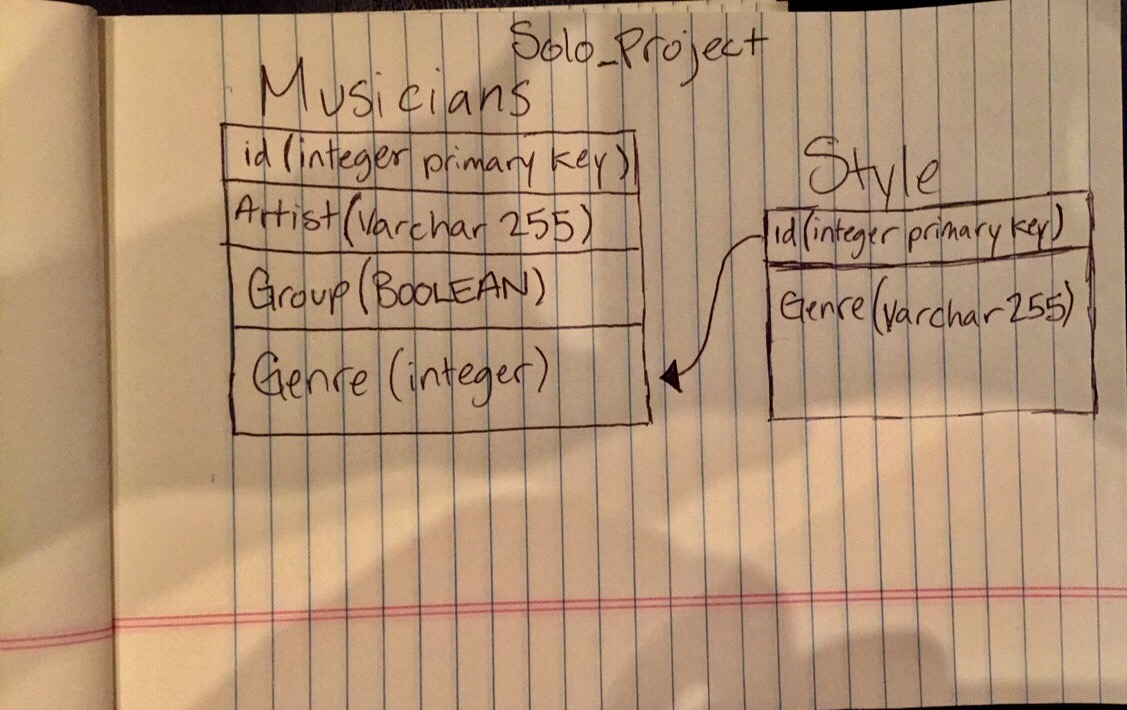 Solo_Project
Musicians
id (integer primary key)
Artist (Varchar 255)
Group (BOOLEAN)
Genre (integer)
Style
id (integer primary key)
Genre (varchar 255)